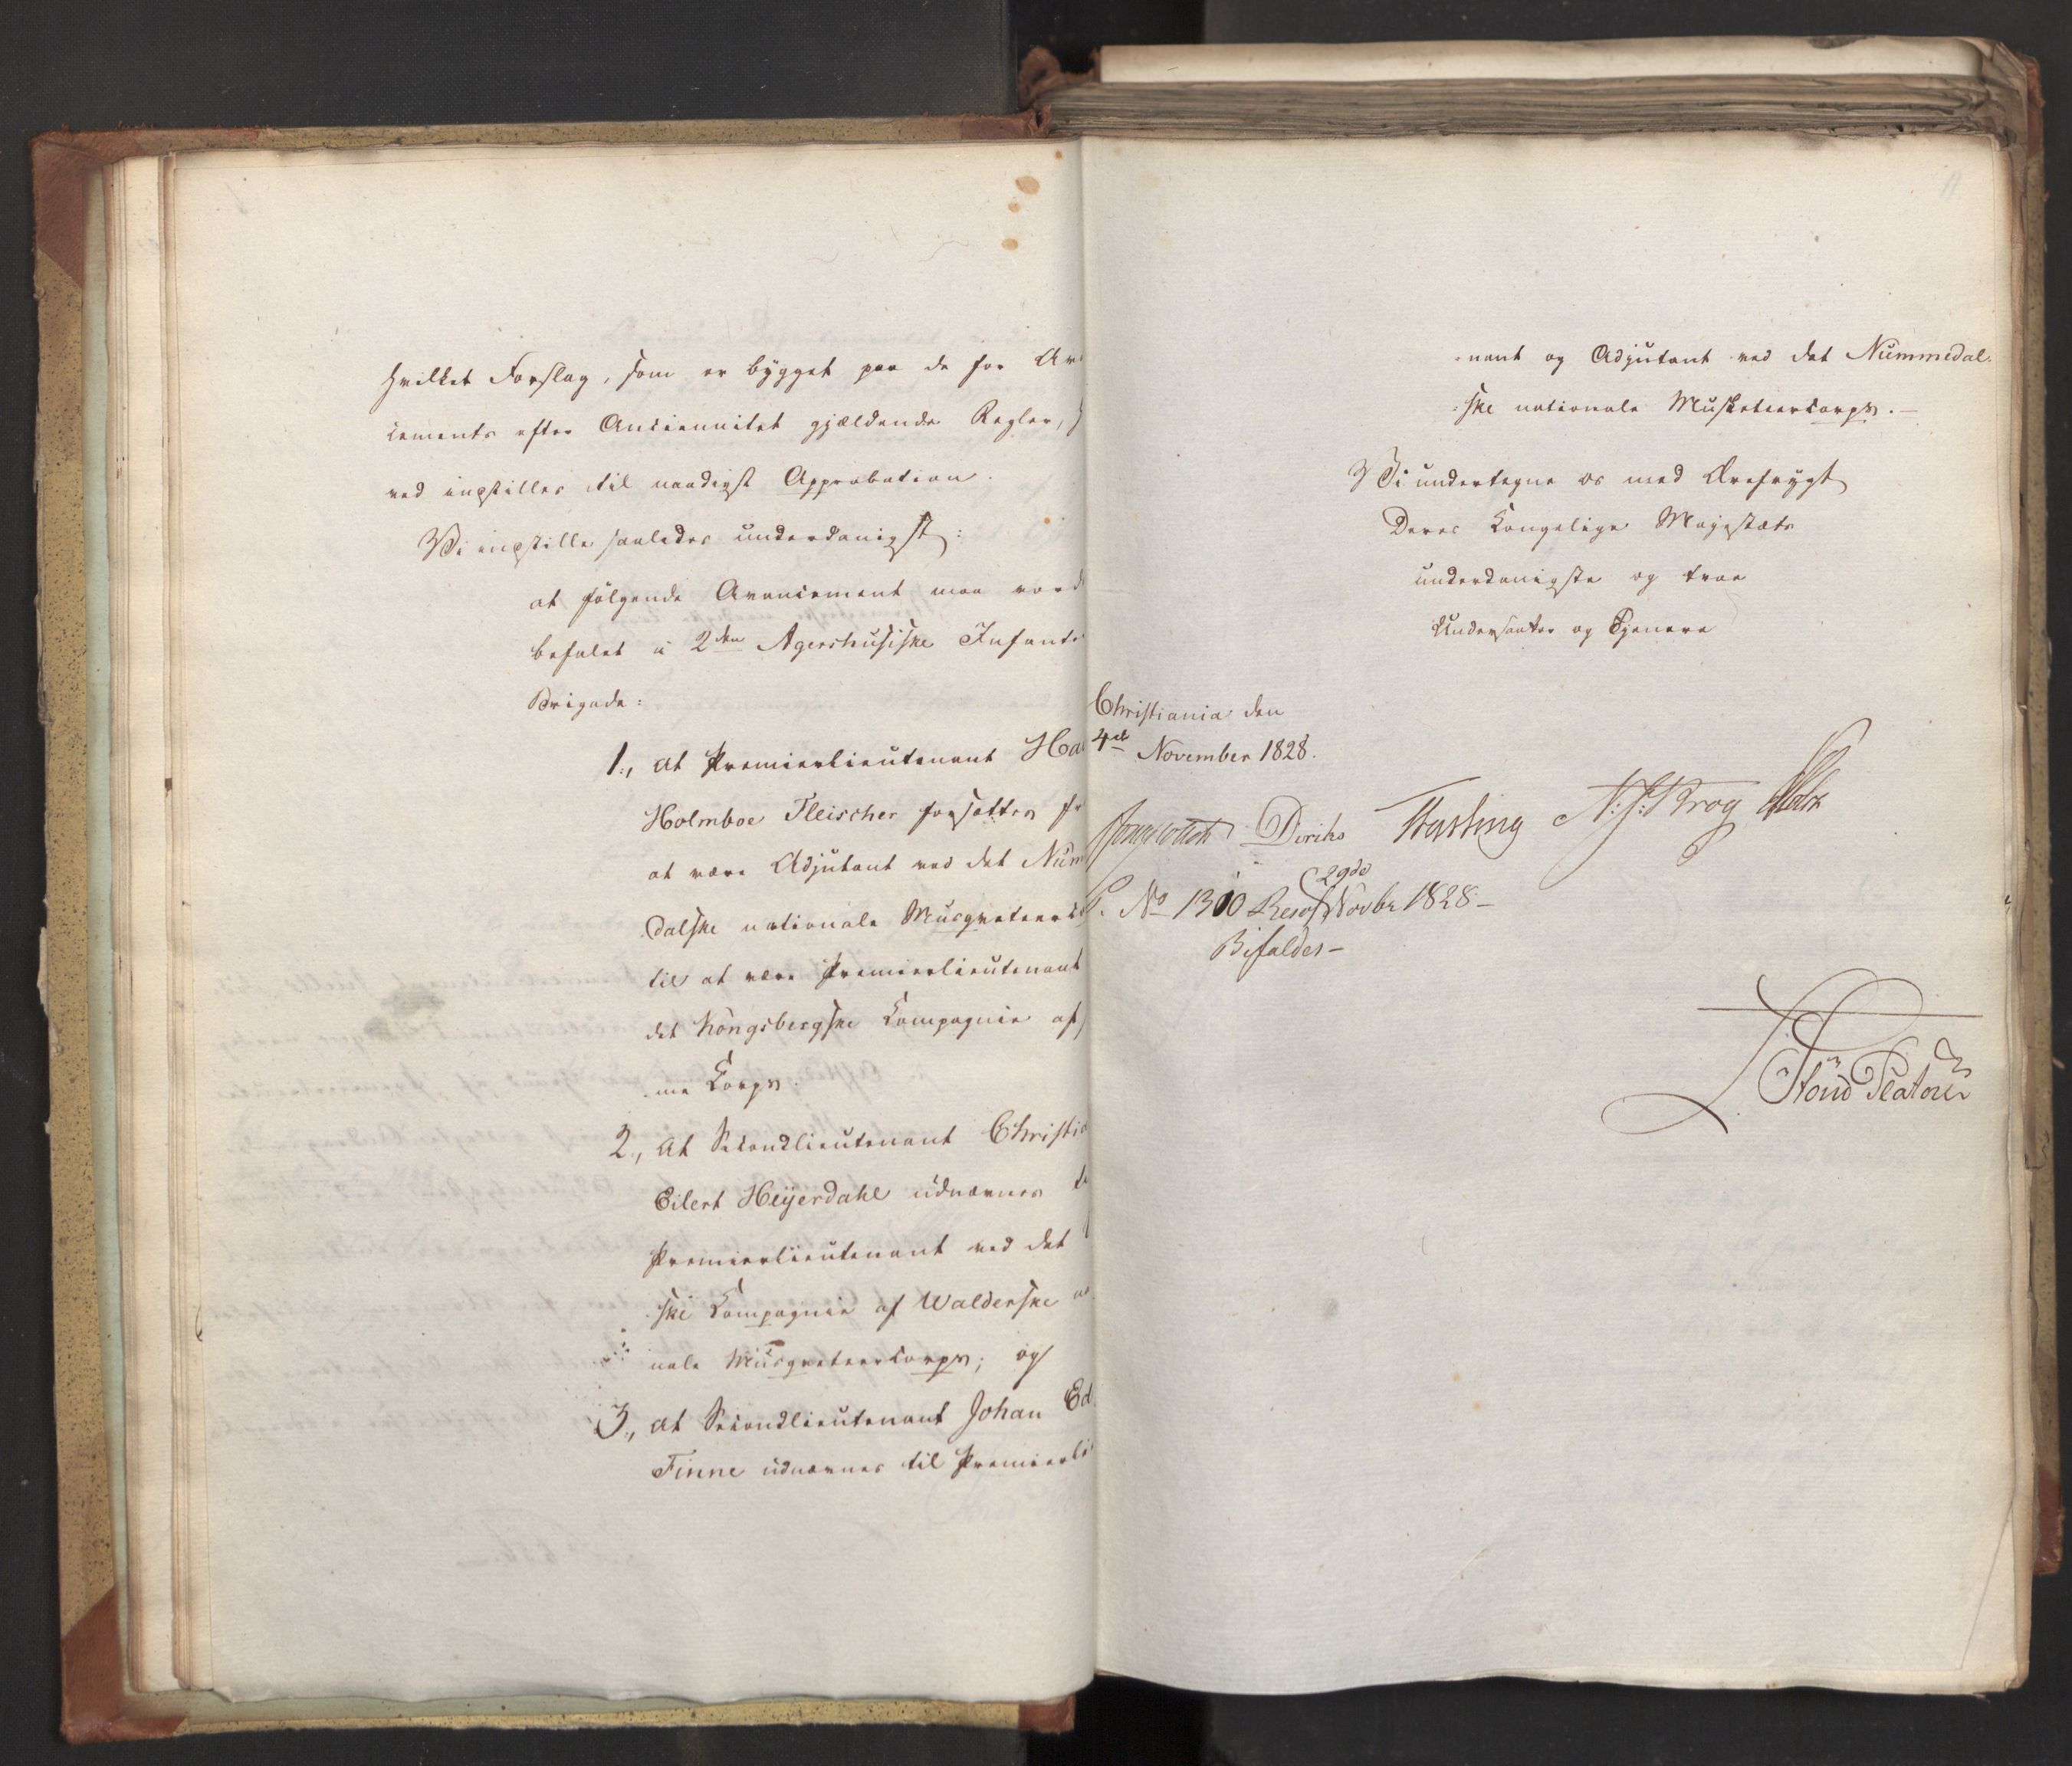 hvilket Forslag, som er bygget paa de for Av
cements efter Anciennitet gjældende Regler, h
ved inpstilles til naadigst Approbation.
Vi inpstille saaledes underdanigst:
at følgende Avancement maa vord
befalet i 2den Agershusiske Infante
Brigade:
1., at Premierlieutenant Ha
Holmboe Fleischer forsættes fr
at være Adjutant ved det Num
dalske nationale Musqveteerc
til at være Premierlieutenant
det Kongsbergske Compagnie af
me Corps.
2., at Secondlieutenant Christia
Eilert Heyerdahl udnævnes t
Premierlieutenant ved det
ske Compagnie af Walderske na
nale Musqveteercorps; og
3., at Secondlieutenant Johan Ed
Finne udnævnes til Premierli
11
nant og Adjutant ved det Nummedal
ske nationale Musketeercorps.
Vi undertegne os med Ærefrygt
Deres Kongelige Majestæts
underdanigste og troe
Undersaatter og Tjenere
Christiania den
4de November 1828.
Diriks Fasting N: J: Krog Holst
P. No 1310 Resol. 29de Novbr 1828 -
Bifaldes -